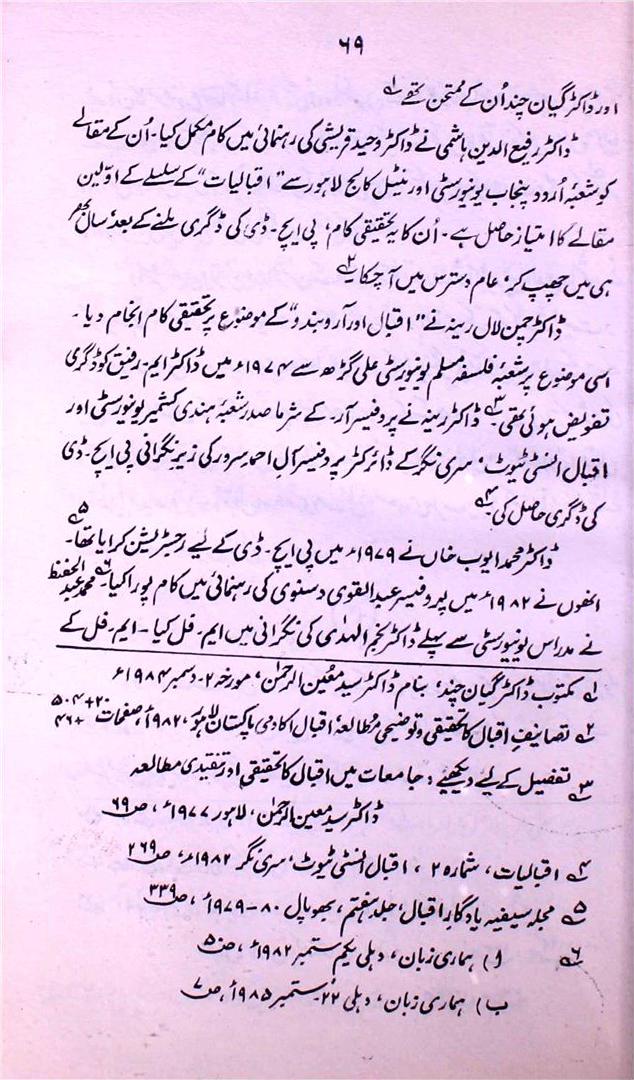 ۶۹
اور ڈاکٹر گیان چند اُن کے ممتحن تھے ۱؎
ڈاکٹر رفیع الدین ہاشمی نے ڈاکٹر وحید قریشی کی رہنمائی میں کام مکمل کیا۔ اُن کے مقالے
کو شعبۂ اُردو پنجاب یونیورسٹی اورینٹل کالج لاہور سے "اقبالیات" کے سلسلے کے اوّلین
مقالے کا امتیاز حاصل ہے۔ اُن کا یہ تحقیقی کام، پی ایچ۔ ڈی کی ڈگری ملنے کے بعد سال بھر
ہی میں چھپ کر، عام دسترس میں آ چکا ہے ۲؎
ڈاکٹر چمن لال رینہ نے "اقبال اور آروبندو" کے موضوع پر تحقیقی کام انجام دیا۔
اسی موضوع پر شعبۂ فلسفہ مسلم یونیورسٹی علی گڑھ سے ۱۹۷۴ء میں ڈاکٹر ایم۔ رفیق کو ڈگری
تفویض ہوئی تھی۔ ۳؎ ڈاکٹر رینہ نے پروفیسر آر۔ کے شرما صدر شعبۂ ہندی کشمیر یونیورسٹی اور
اقبال انسٹی ٹیوٹ، سری نگر کے ڈائرکٹر پروفیسر آل احمد سرور کی زیرِ نگرانی پی ایچ۔ ڈی
کی ڈگری حاصل کی ۴؎
ڈاکٹر محمد ایوب خاں نے ۱۹۷۹ء میں پی ایچ۔ ڈی کے لیے رجسٹریشن کرایا تھا۔ ۵؎
انھوں نے ۱۹۸۲ء میں پروفیسر عبدالقوی دسنوی کی رہنمائی میں کام پورا کیا۔ ۶؎ محمد عبدالحفیظ
نے مدراس یونیورسٹی سے پہلے ڈاکٹر نجم الہدٰی کی نگرانی میں ایم۔ فل کیا۔ ایم۔ فل کے
۱؎ مکتوب ڈاکٹر گیان چند، بنام ڈاکٹر سید معین الرحمٰن، مورخہ ۲۔ دسمبر ۱۹۸۴ء
۲؎ تصانیفِ اقبال کا تحقیقی و توضیحی مطالعہ اقبال اکادمی پاکستان لاہور، ۱۹۸۲ء، صفحات ۲۰+۵۰۴+۴۶
۳؎ تفصیل کے لیے دیکھیے: جامعات میں اقبال کا تحقیقی اور تنقیدی مطالعہ
ڈاکٹر سید معین الرحمٰن، لاہور ۱۹۷۷ء، ص ۶۹
۴؎ اقبالیات، شمارہ ۲، اقبال انسٹی ٹیوٹ، سری نگر ۱۹۸۲ء، ص ۲۶۹
۵؎ مجلہ سیفیہ یادگارِ اقبال، جلد ہفتم، بھوپال ۸۰-۱۹۷۹ء، ص ۳۳۹
۶؎ ا) ہماری زبان، دہلی یکم ستمبر ۱۹۸۲ء، ص ۵
ب) ہماری زبان، دہلی ۲۲۔ ستمبر ۱۹۸۵ء، ص ۷